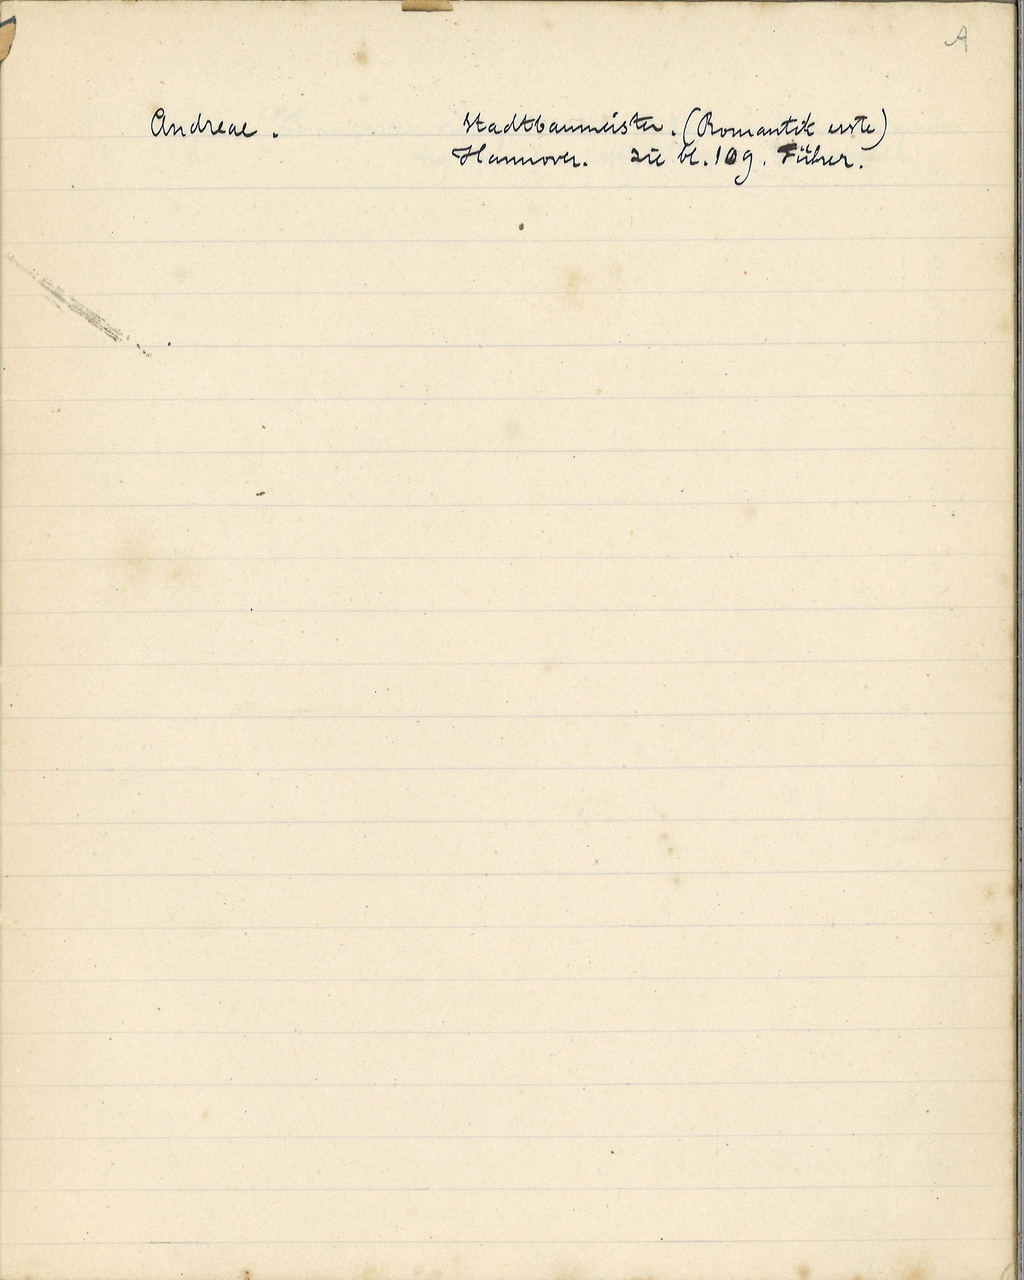 A
Andreae. Stadtbaumeister. (Romantik erste)
Hannover. zie bl. 109. Führer.